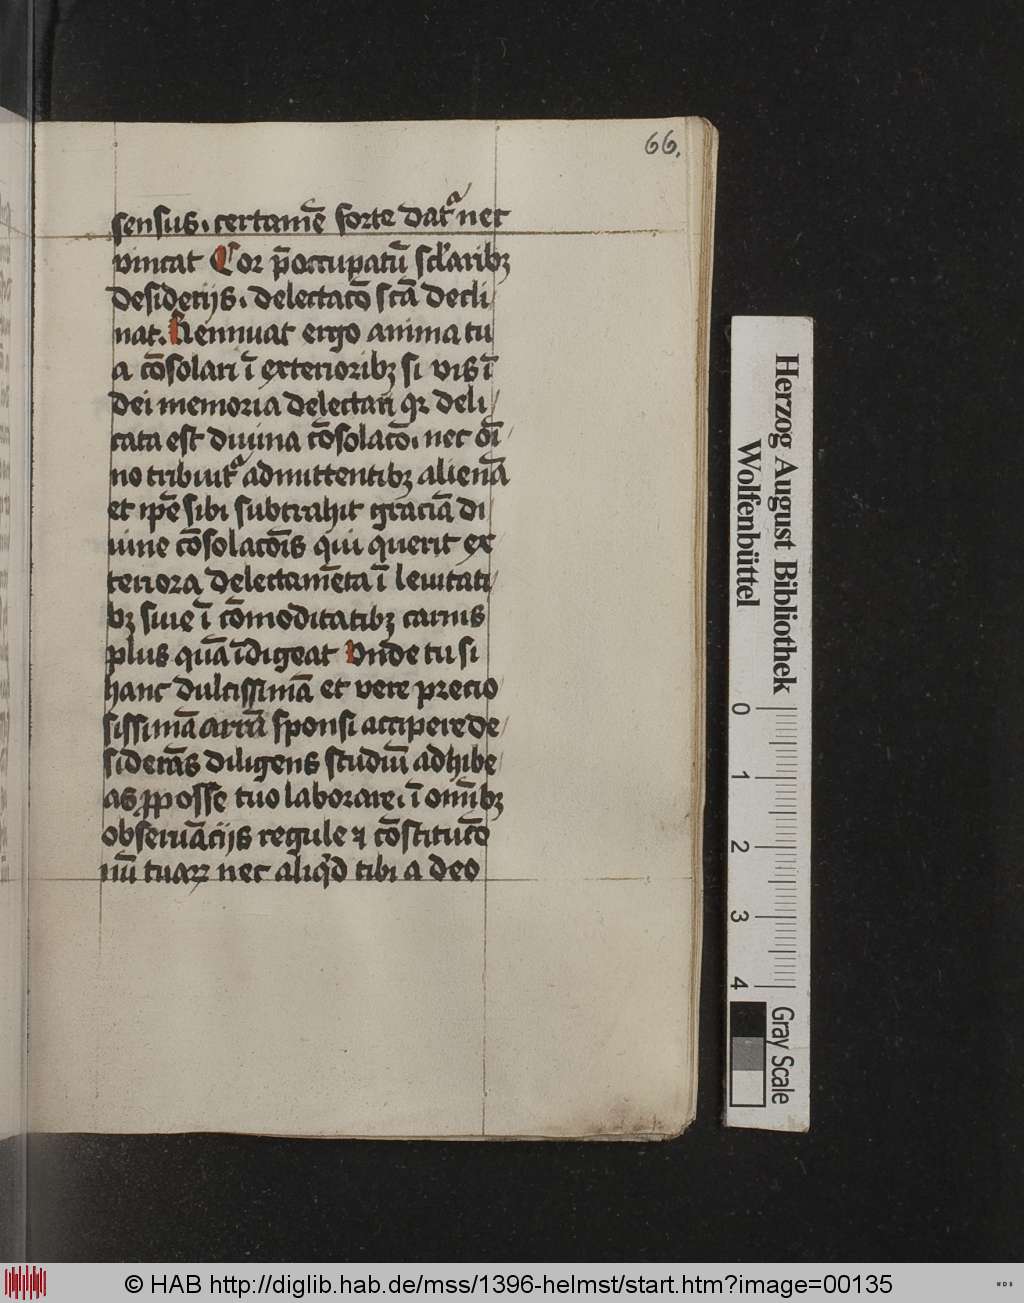 66.
sensus. certamē forte dat͛ nec
vincat Cor p̄occupatū sc̄laribꝫ
desiderijs. delectacō scā decli/
nat. Rennuat ergo anima tu
a cōsolari ī exterioribꝫ si vis ī
dei memoria delectari qꝛ deli/
cata est diuina cōsolacō. nec oī/
no tribuit͛ admittentibꝫ alienā
et ip̄e sibi subtrahit graciā di
uine cōsolacōis qui querit ex
teriora delectamēta ī leuitati/
bꝫ siue ī cōmoditatibꝫ carnis
plus quā īdigeat Vnde tu si
hanc dulcissimā et vere precio
sissimā arrā sponsi accipere de/
siderās diligens studiū adhibe/
as ꝓ posse tuo laborare. ī om̄ibꝫ
obseruācijs regule ⁊ cōstitucō
nū tuaꝝ nec aliqd̄ tibi a deo
Herzog August Bibliothek
Wolfenbüttel
0 1 2 3 4
Gray Scale
© HAB http://diglib.hab.de/mss/1396-helmst/start.htm?image=00135
WDB